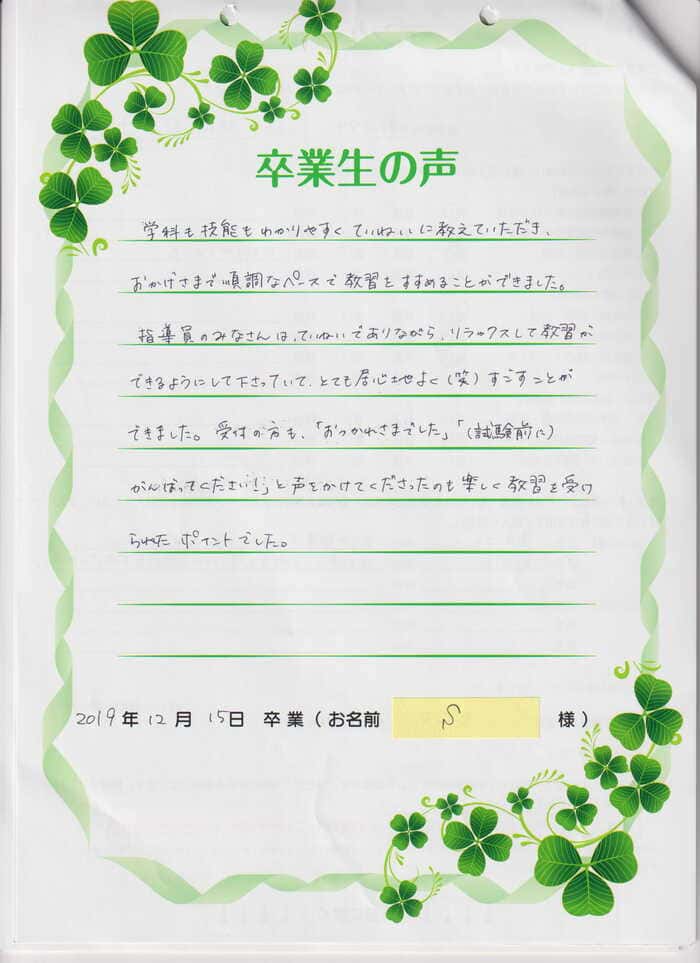 卒業生の声
学科も技能もわかりやすくていねいに教えていただき、
おかげさまで順調なペースで教習をすすめることができました。
指導員のみなさんは、ていねいでありながら、リラックスして教習が
できるようにして下さっていて、とても居心地よく(笑)すごすことが
できました。受付の方も、「おつかれさまでした」「(試験前に)
がんばってください!」と声をかけてくださったのも楽しく教習を受け
られたポイントでした。
2019年12月15日 卒業(お名前 S 様)